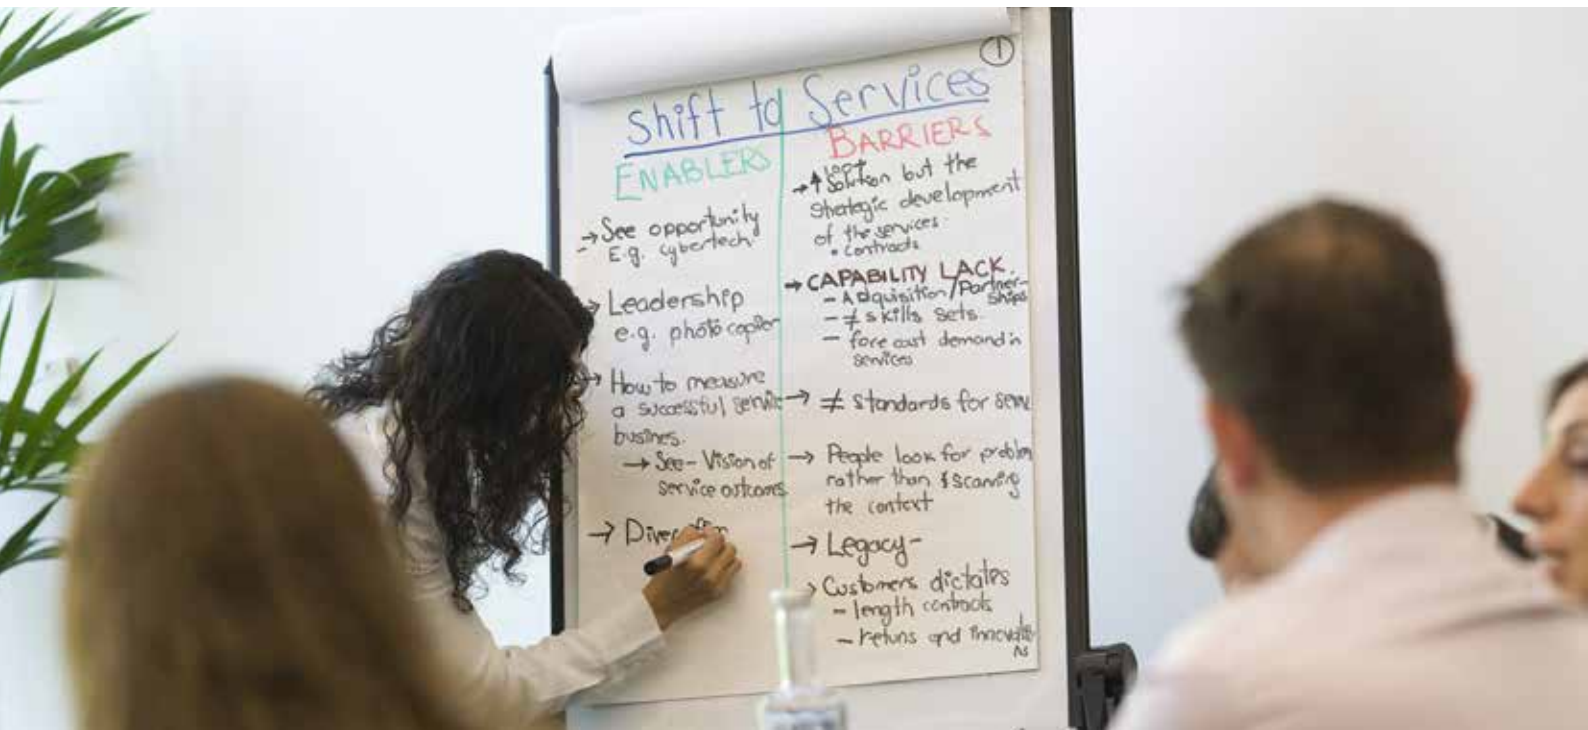 ①
Shift to Services
ENABLERS
→ See opportunity
E.g. cybertech.
→ Leadership
e.g. photocopier
→ How to measure
a successful service
busines.
→ See - Vision of
service outcomes
→
BARRIERS
→ ↑
Solution but the
Strategic development
of the services
• contracts
→ CAPABILITY LACK.
- Adquisition/Partner-
ships
- ≠ skills sets.
- fore cast demand in
services
→ ≠ standards for
→ People look for
rather than scanning
the context
→ Legacy -
→ Customers dictates
- length contracts
- and